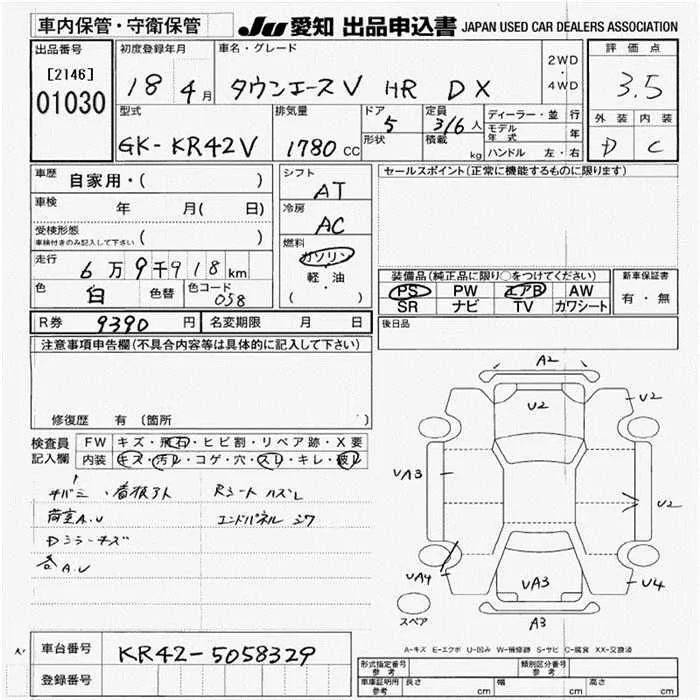 車内保管・守衛保管
JU 愛知 出品申込書 JAPAN USED CAR DEALERS ASSOCIATION
出品番号
[2146]
01030
初度登録年月
18 4月
車名・グレード
タウンエースV HR DX
2WD
・
4WD
評価点
3.5
外装 内装
D C
型式
GK-KR42V
排気量
1780 CC
ドア
5
形状
定員
3/6 人
積載
kg
ディーラー・並 行
モデル年式 年
ハンドル 左・右
車歴
自家用・( )
車検
年 月( 日)
受検形態
車検付きのみ記入して下さい ( )
走行
6万9千918km
色
白 色替
色コード
058
R券 9390 円
名変期限 月 日
シフト
AT
冷房
AC
燃料
ガソリン
軽・油
( )
セールスポイント(正常に機能するものに限ります)
装備品(純正品に限り○をつけてください)
PS PW エアB AW
SR ナビ TV カワシート
新車保証書
有・無
後日品
注意事項申告欄(不具合内容等は具体的に記入して下さい)
修復歴 有 (箇所 )
検査員
記入欄
FW キズ・飛石・ヒビ割・リペア跡・X要
内装 キズ・汚レ・コゲ・穴・スレ・キレ・破レ
Rシート ハズレ
荷室A.U
エンドパネル シワ
Dミラーキズ
各A.U
A2
U2
U2
UA3
U2
UA4
UA3
U4
A3
スペア
A-キズ E-エクボ U-凹み W-補修跡 S-サビ C-腐食 XX-交換済
車台番号 KR42-5058329
登録番号
形式指定番号
参考
類別区分番号
参考
車庫証明用
参考
長さ cm 幅 cm 高さ cm